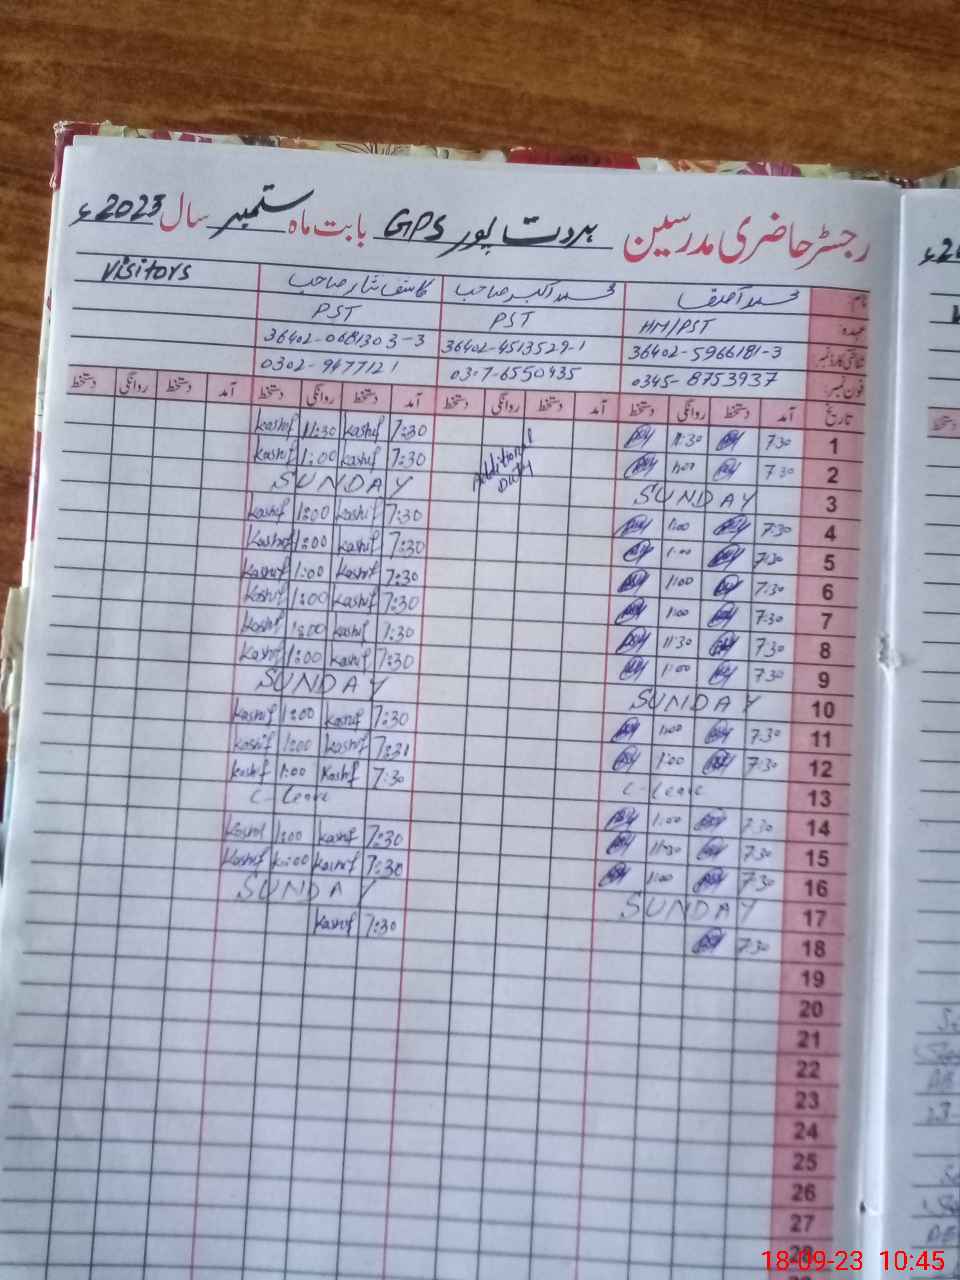 رجسٹر حاضری مدرسین ہردت پور GPS بابت ماہ ستمبر سال 2023ء
نام: کاشف نثار صاحب Visitors
عہدہ: HM/PST PST PST
شناختی کارڈ نمبر: 36402-5966181-3 36402-4513529-1 36402-0681303-3
فون نمبر: 0345-8753937 0307-6550435
تاریخ آمد دستخط روانگی دستخط آمد دستخط روانگی دستخط آمد دستخط روانگی دستخط آمد دستخط روانگی دستخط
1 7:30 11:30 7:30 Kashif 11:30 Kashif
2 7:30 1:00 Additional Duty 7:30 Kashif 1:00 Kashif
3 SUNDAY SUNDAY
4 7:30 1:00 7:30 Kashif 1:00 Kashif
5 7:30 1:00 7:30 Kashif 1:00 Kashif
6 7:30 1:00 7:30 Kashif 1:00 Kashif
7 7:30 1:00 7:30 Kashif 1:00 Kashif
8 7:30 11:30 7:30 Kashif Kashif
9 7:30 1:00 7:30 Kashif 1:00 Kashif
10 SUNDAY SUNDAY
11 7:30 1:00 7:30 Kashif 1:00 Kashif
12 7:30 1:00 Kashif 1:00 Kashif
13 C-Leave 7:30 Kashif 1:00 Kashif
14 7:30 1:00 C-Leave
15 7:30 11:30 7:30 Kashif 1:00 Kashif
16 7:30 1:00 7:30 Kashif Kashif
17 SUNDAY SUNDAY
18 7:30 7:30 Kashif
19
20
21
22
23
24
25
26
27
28
18-09-23 10:45